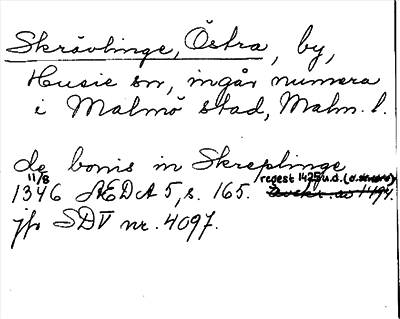 Skrävlinge, Östra, by,
Husie sn, ingår numera
i Malmö stad, Malm. l.
de bonis in Skreplinge
11/8
1346 ÆDA 5, s. 165. regest 1425 u.d.
jfr SD V nr. 4097.